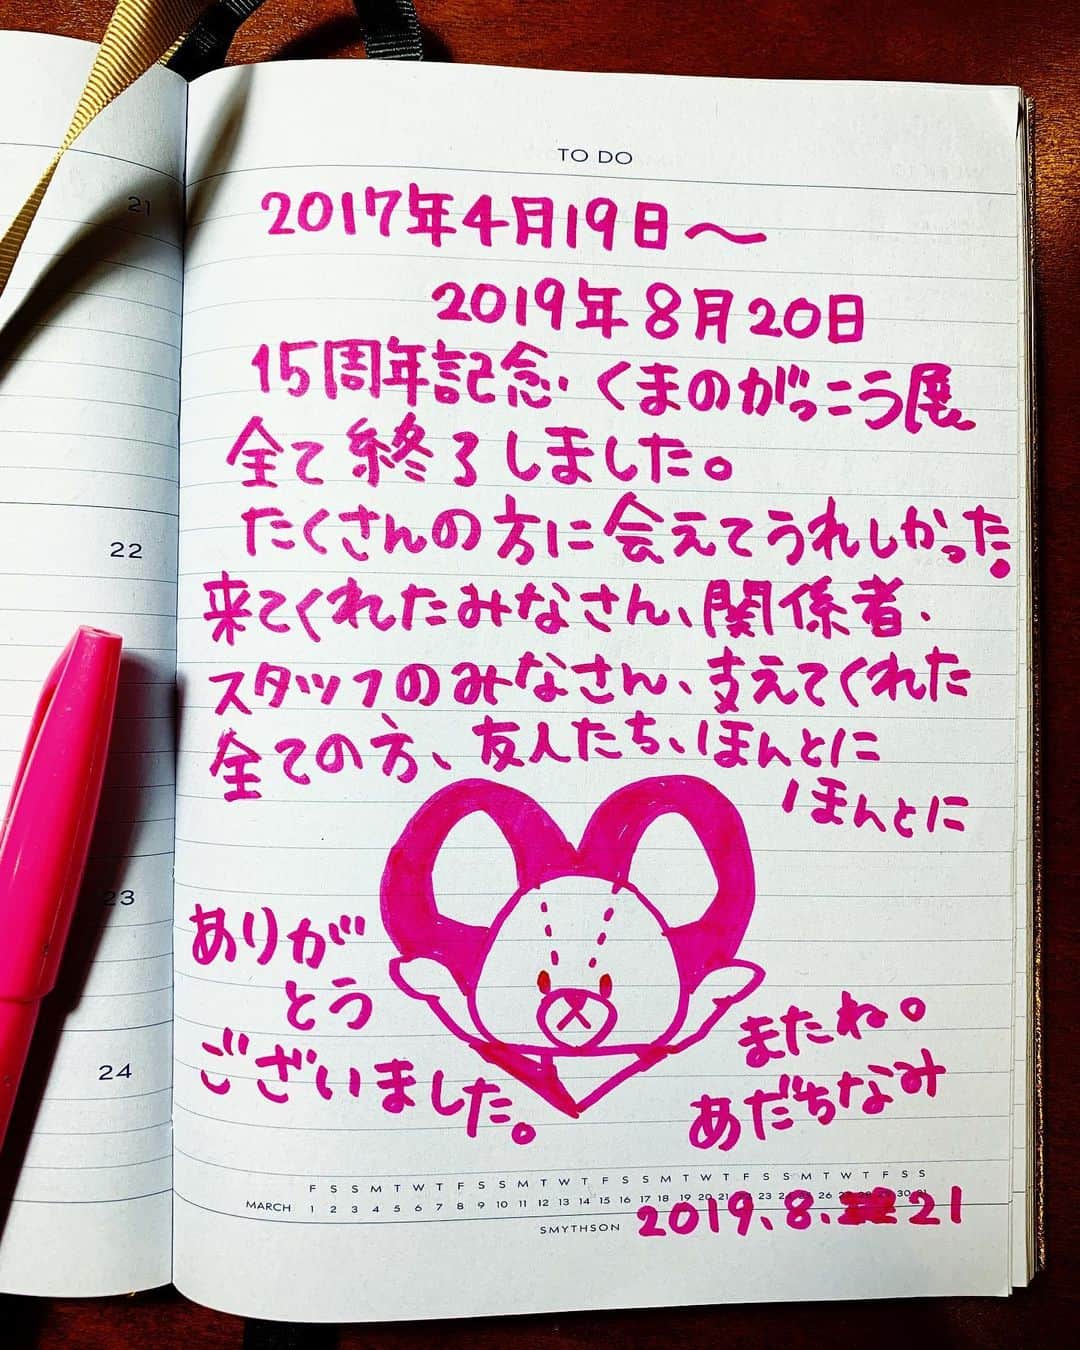 TO DO
21
2017年4月19日〜
2019年8月20日
15周年記念・くまのがっこう展
全て終了しました。
たくさんの方に会えてうれしかった。
22
来てくれたみなさん、関係者、
スタッフのみなさん、支えてくれた
全ての方、友人たち、ほんとに
ほんとに
23
ありが
とう
ございました。
24
またね。
あだちなみ
F S S M T W T F S S M T W T F S S M T W T F S S M T W T F S S
MARCH 1 2 3 4 5 6 7 8 9 10 11 12 13 14 15 16 17 18 19 20 21 23 24 25 26 30 31
SMYTHSON
2019.8. 21